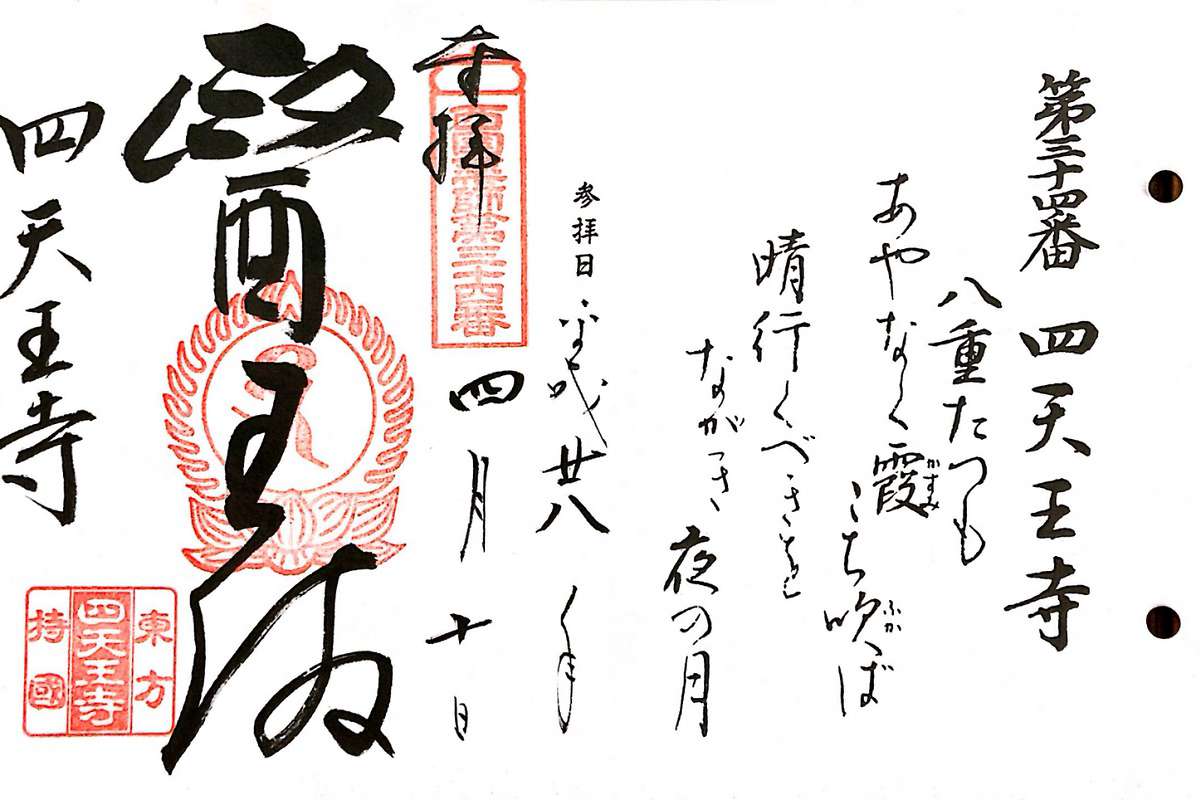 第三十四番 四天王寺
八重たつも
あやなく霞
かすみ
こち吹ば
ふか
晴行くべき
ながき夜の月
参拝日 平成廿八年
四月十日
奉拝
西国薬師第三十四番
醫王
四天王寺
東方
四天王寺
持國